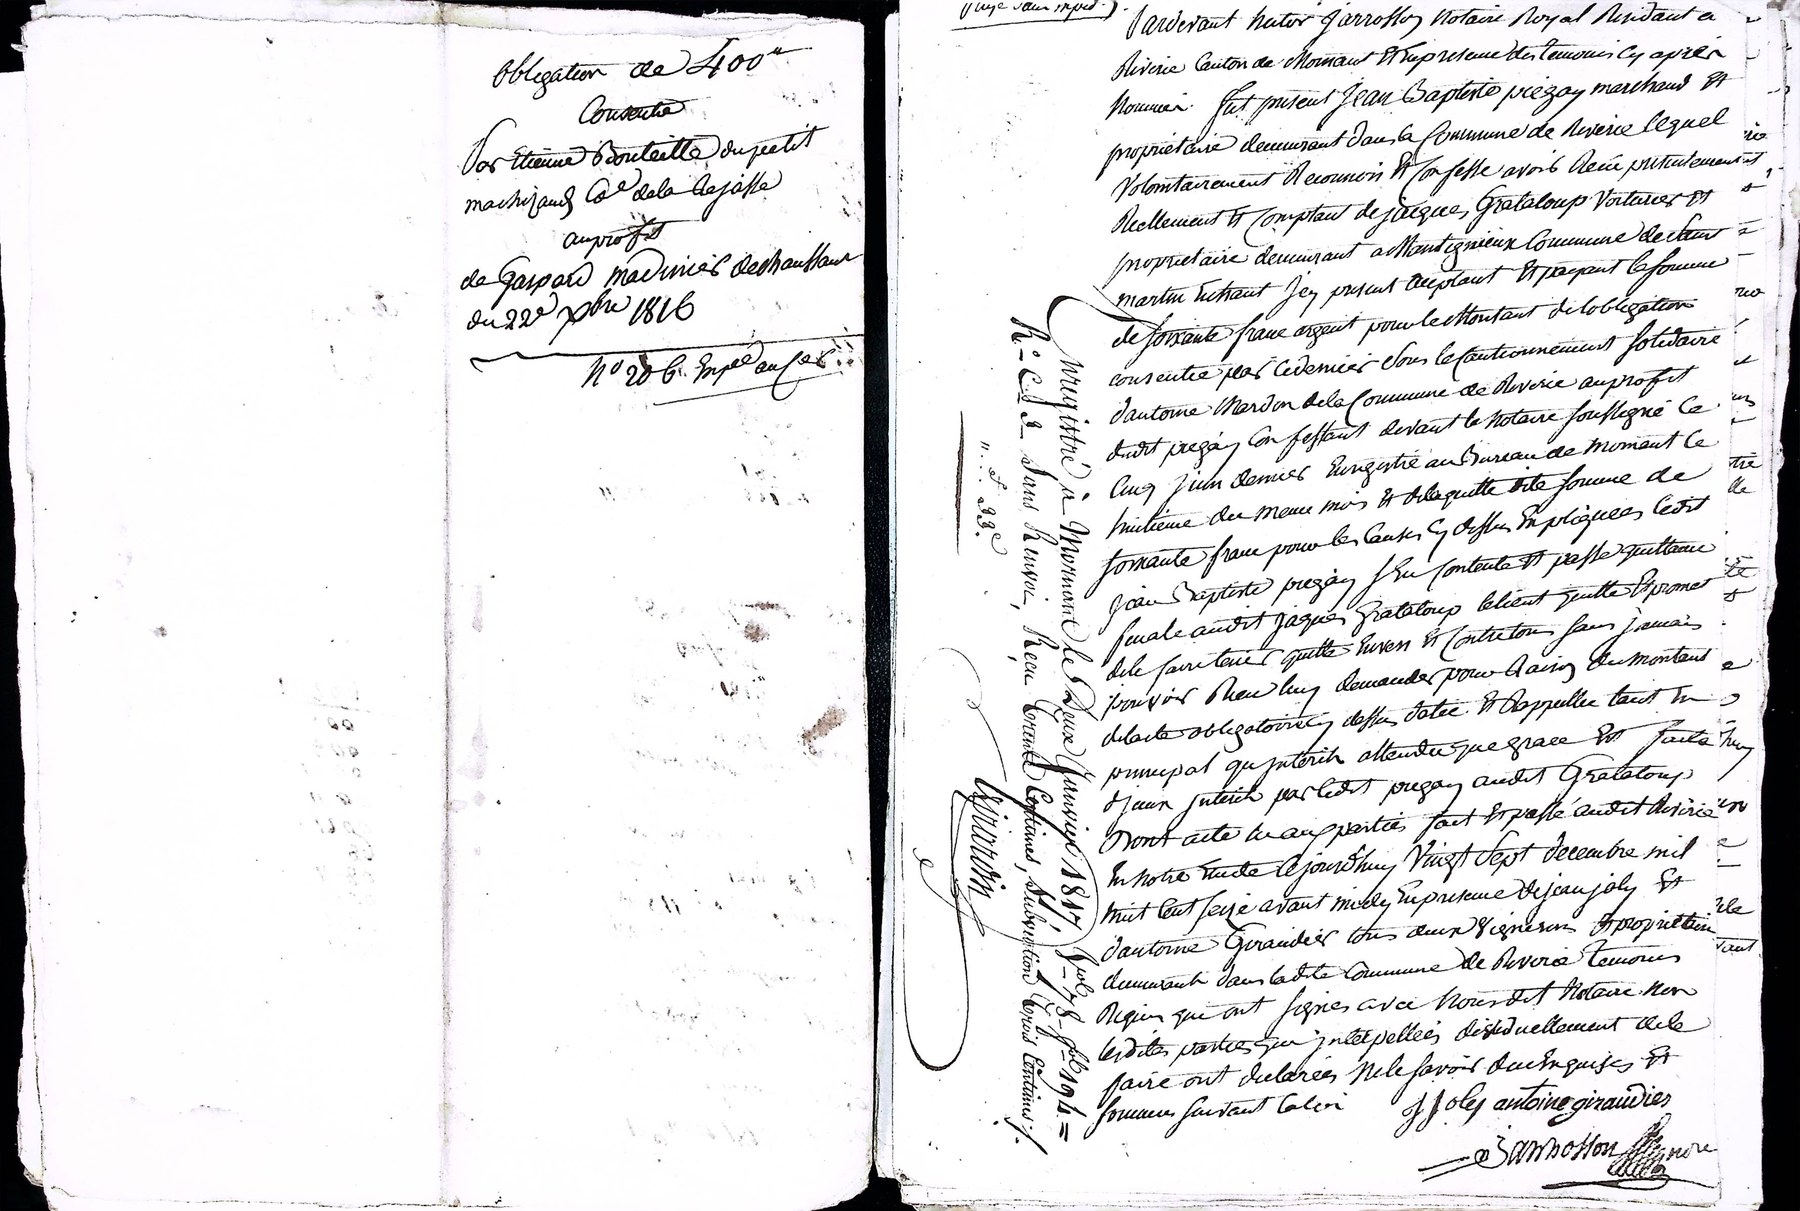 Obligation de 400"
Consentie
Par Etienne Bouteille du petit
machizaud Cne de la Rajasse
au profit
de Gaspard madinier de chaussan
du 22e Xbre 1816
No 206
Pardevant hutor Jarrosson Notaire Royal Residant a
Riverie Canton de Mornant Et en presence des temoins cy apres
Nommés. fut present Jean Baptiste piegay marchand Et
proprietaire demeurant dans la Commune de Riverie lequel
Volontairement Reconnois Et Confesse avoir Recu presentement
Reellement Et Comptant de jacques Grataloup Voiturier Et
proprietaire demeurant a Mantignieux Commune de Saint
martin
de soixante franc argent pour le Montant de lobligation
consentie par ce dernier sous le Cautionnement solidaire
dantoine Nardon de la Commune de Riverie au profit
dudit piegay Confessant devant le Notaire soussigné le
Cinq juin dernier Enregistré au Bureau de Mornant le
huitieme du meme mois Et de laquelle dite somme de
soixante franc pour les Causes cy dessus Expliquees ledit
jean Baptiste piegay sEn Contente Et passe quittance
finale audit jaques Grataloup le tient quitte Et promet
de le faire tenir quitte Envers Et Contre tous sans jamais
pouvoir Rien luy demander pour Raison du montant
de lacte obligatoire cy dessus datée Et Rappellée tant En
principal qu jnterêts attendu que grace Est faite
djceux jnterêts par ledit piegay audit Grataloup
Dont acte lu aux parties fait Et passé audit Riverie
En Notre Etude Ce jourdhuy Vingt Sept decembre mil
huit Cent seize avant midy En presence de jean joly Et
dantoine Giraudier tous deux Vignerons Et proprietaires
demeurants dans ladite Commune de Riverie temoins
Requis qui ont signés avec Nous dit Notaire Non
lesdites parties qui jnterpellées distinctuellement de le
faire ont declarées Ne le savoir duement Enquises Et
sommees suivant la loi
J Joly antoine giraudier
Jarrosson Nore
Enregistré à Mornant le Deux Janvier 1817 Vol. 78 fol 194 =
Ro Ce 2 Sans Renvoi, Reçu Trente Centimes, Subvention Trois Centimes ./.
" . f 33c
Girardin